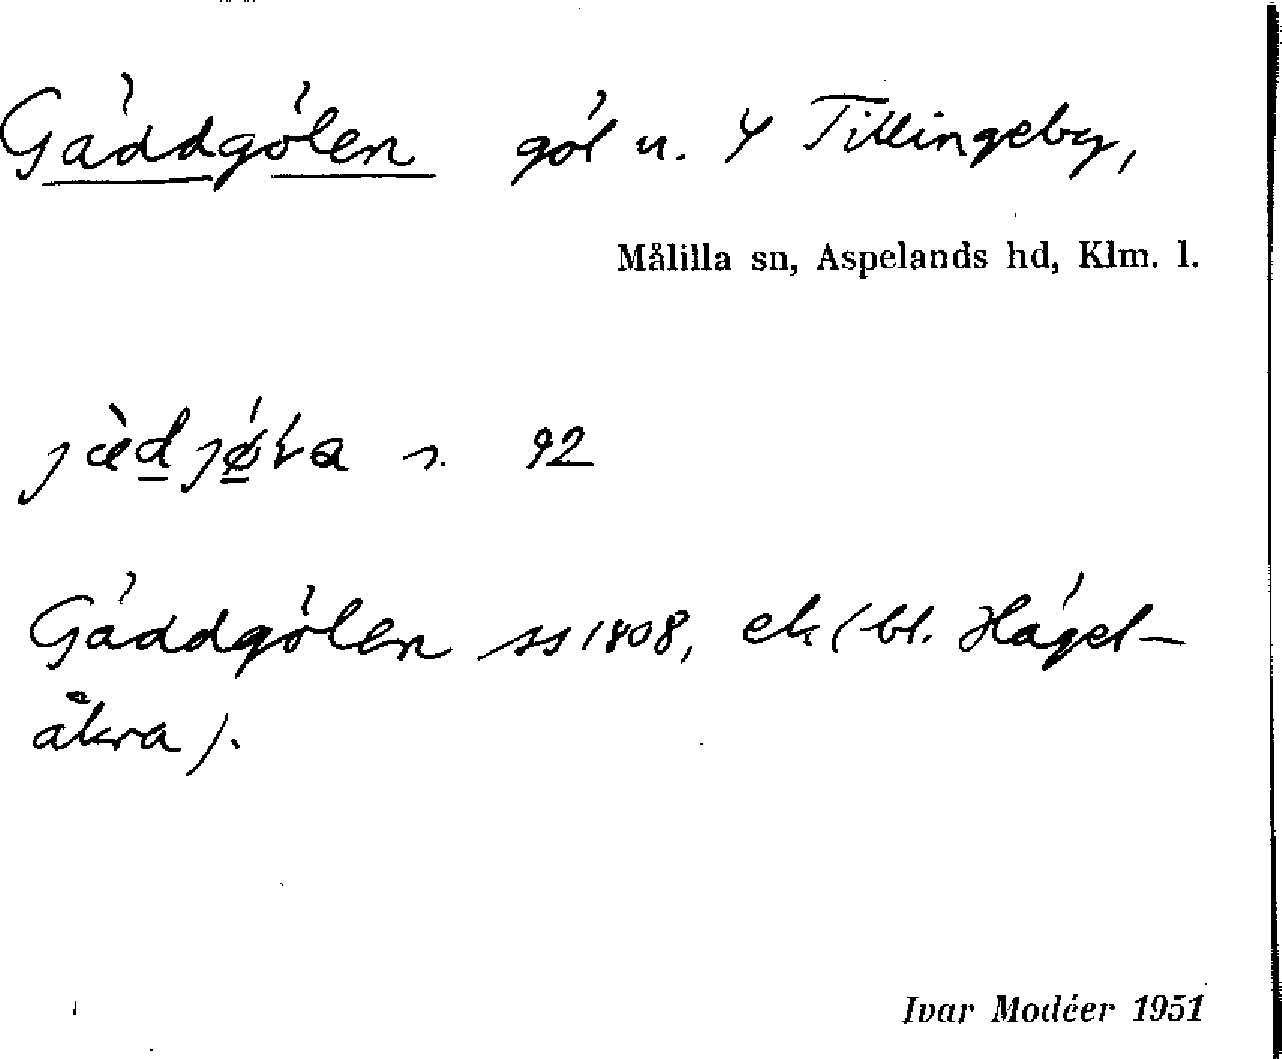 Gäddgölen göl u. Y Tillingeby,
Målilla sn, Aspelands hd, Klm. l.
92
Gäddgölen ss 1808, ek (bl. Hägel-
åkra).
Ivar Modéer 1951